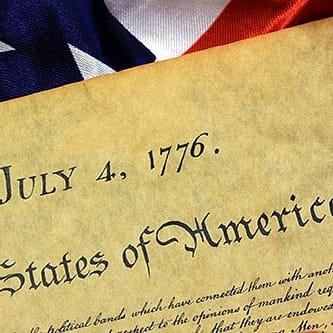 JULY 4, 1776.
States of America
political bands which have connected them with
to the opinions of mankind
that they are